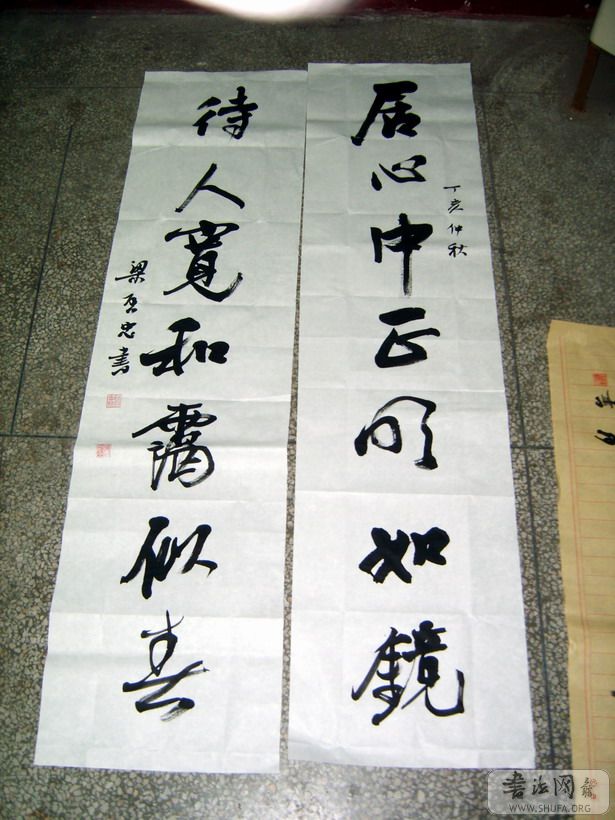 居心中正明如鏡
丁亥仲秋
待人寬和靄似春
梁启忠書
書法网
WWW.SHUFA.ORG